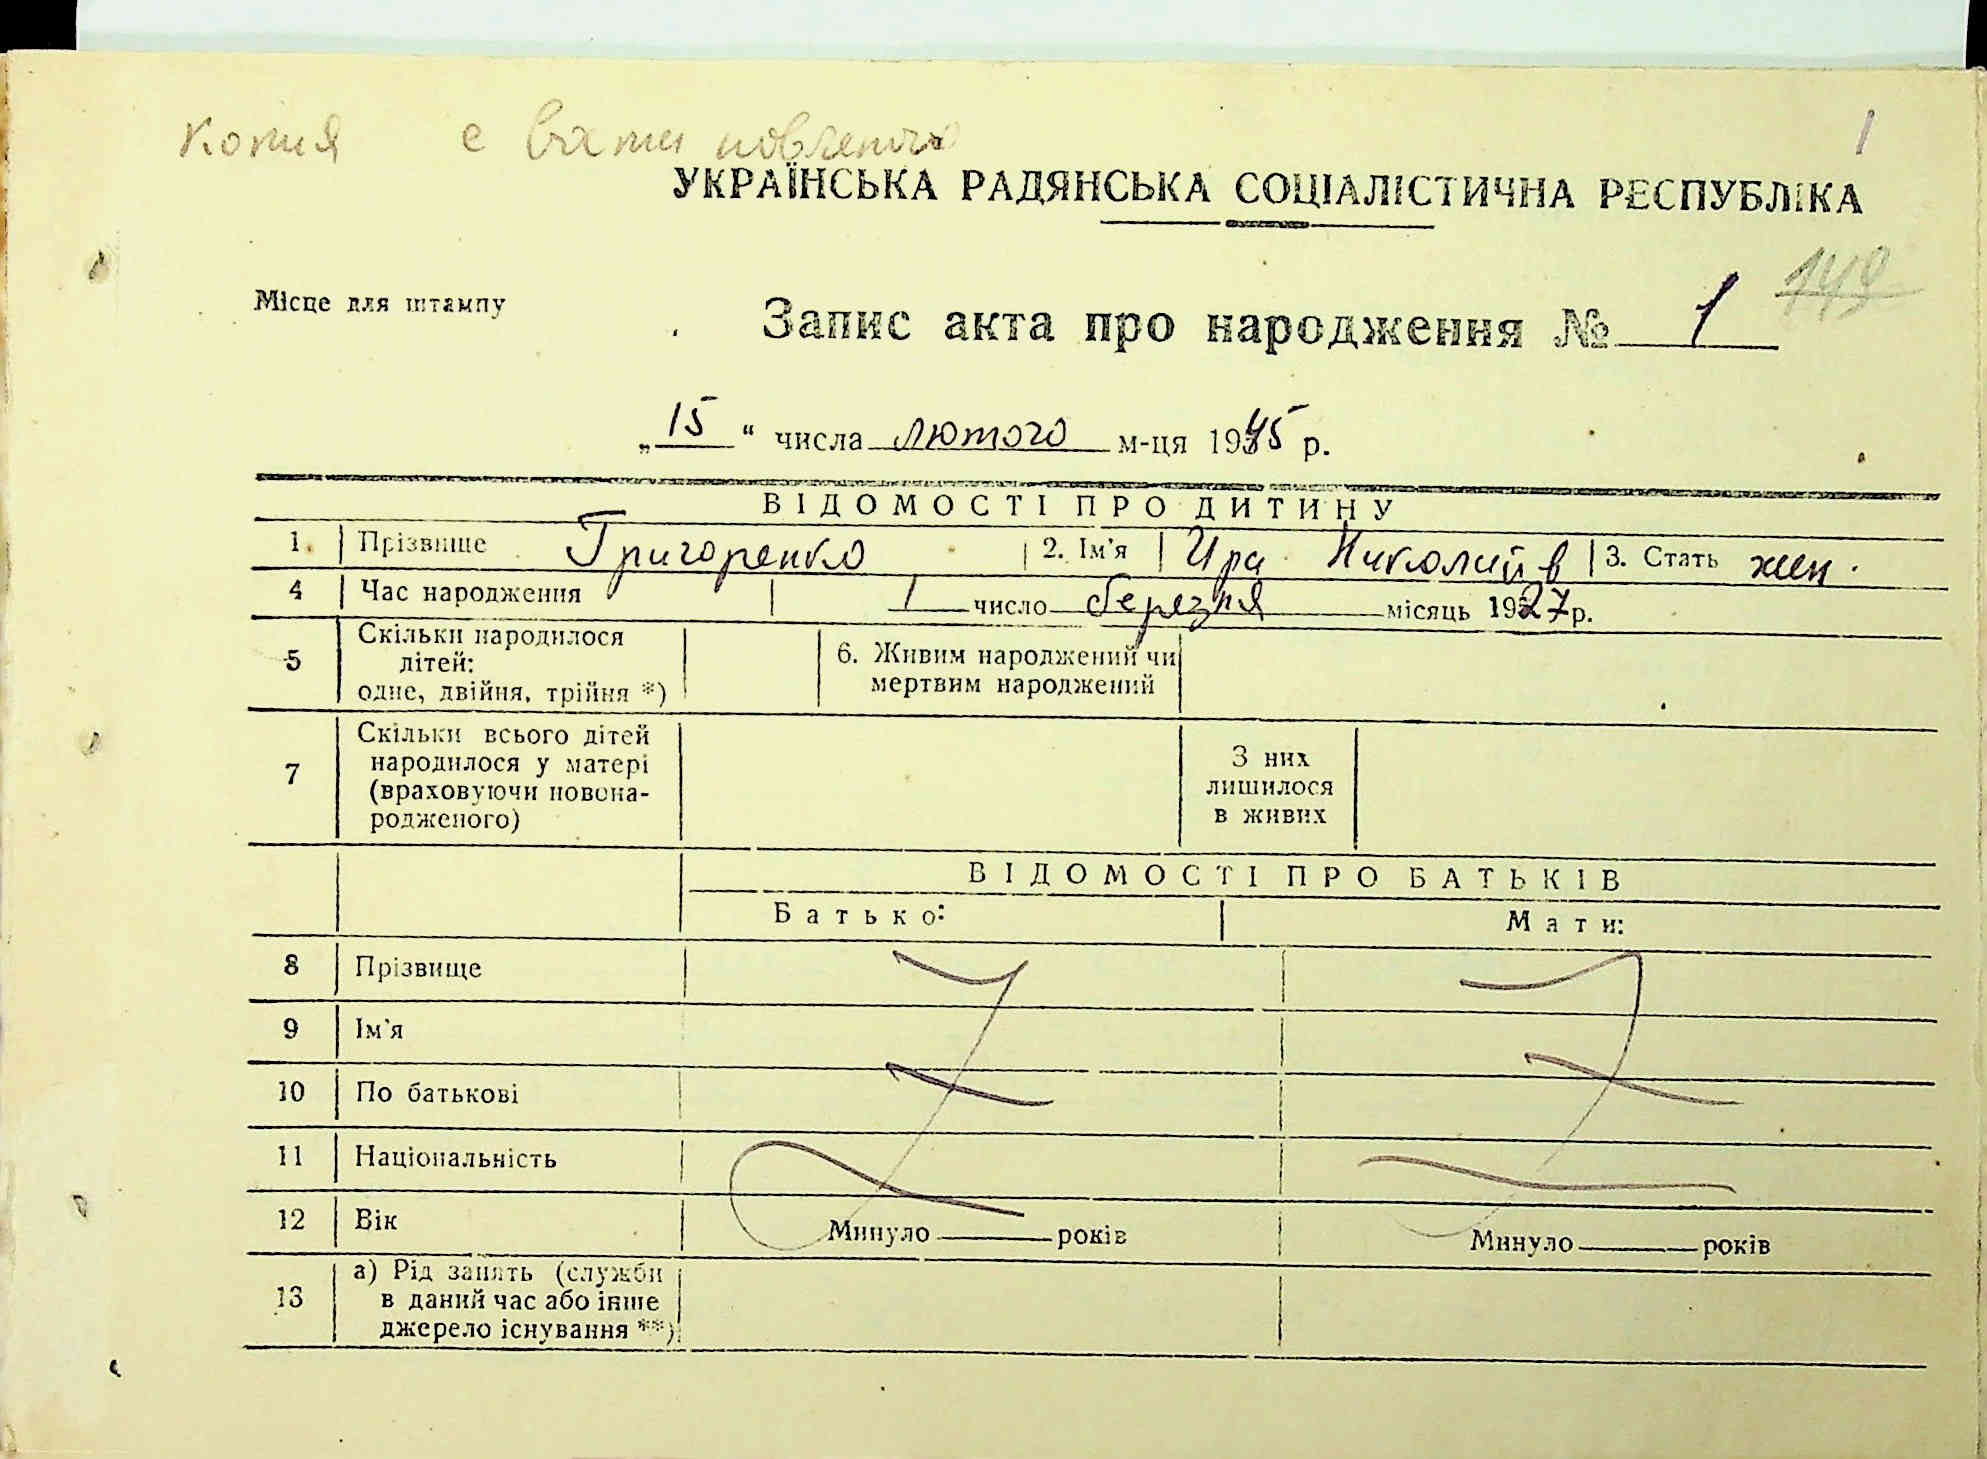 копия е
1
УКРАЇНСЬКА РАДЯНСЬКА СОЦІАЛІСТИЧНА РЕСПУБЛІКА
149
Місце для штампу
Запис акта про народження № 1
„15“ числа лютого м-ця 1945 р.
ВІДОМОСТІ ПРО ДИТИНУ
1. Прізвище Григоренко 2. Ім'я Ира Николаив 3. Стать жен.
4 Час народження 1 число березня місяць 1927 р.
5 Скільки народилося
дітей:
одне, двійня, трійня *)
6. Живим народжений чи
мертвим народжений
7 Скільки всього дітей
народилося у матері
(враховуючи новона-
родженого)
З них
лишилося
в живих
ВІДОМОСТІ ПРО БАТЬКІВ
Батько: Мати:
8 Прізвище
9 Ім'я
10 По батькові
11 Національність
12 Вік Минуло років Минуло років
13 а) Рід занять (служби
в даний час або інше
джерело існування **)